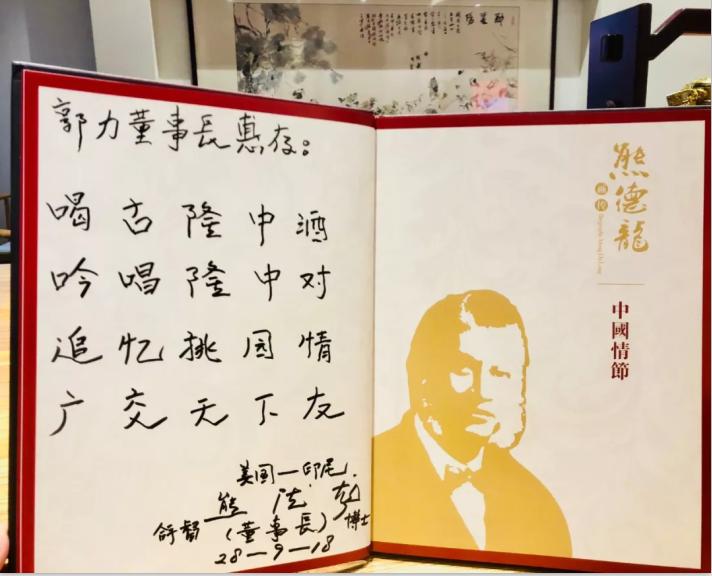 郭力董事長惠存：
喝古隆中酒
吟唱隆中对
追忆挑园情
广交天下友
美国一印尼
熊
(董事長)
博士
28-9-18
熊德龍
画传
中國情節